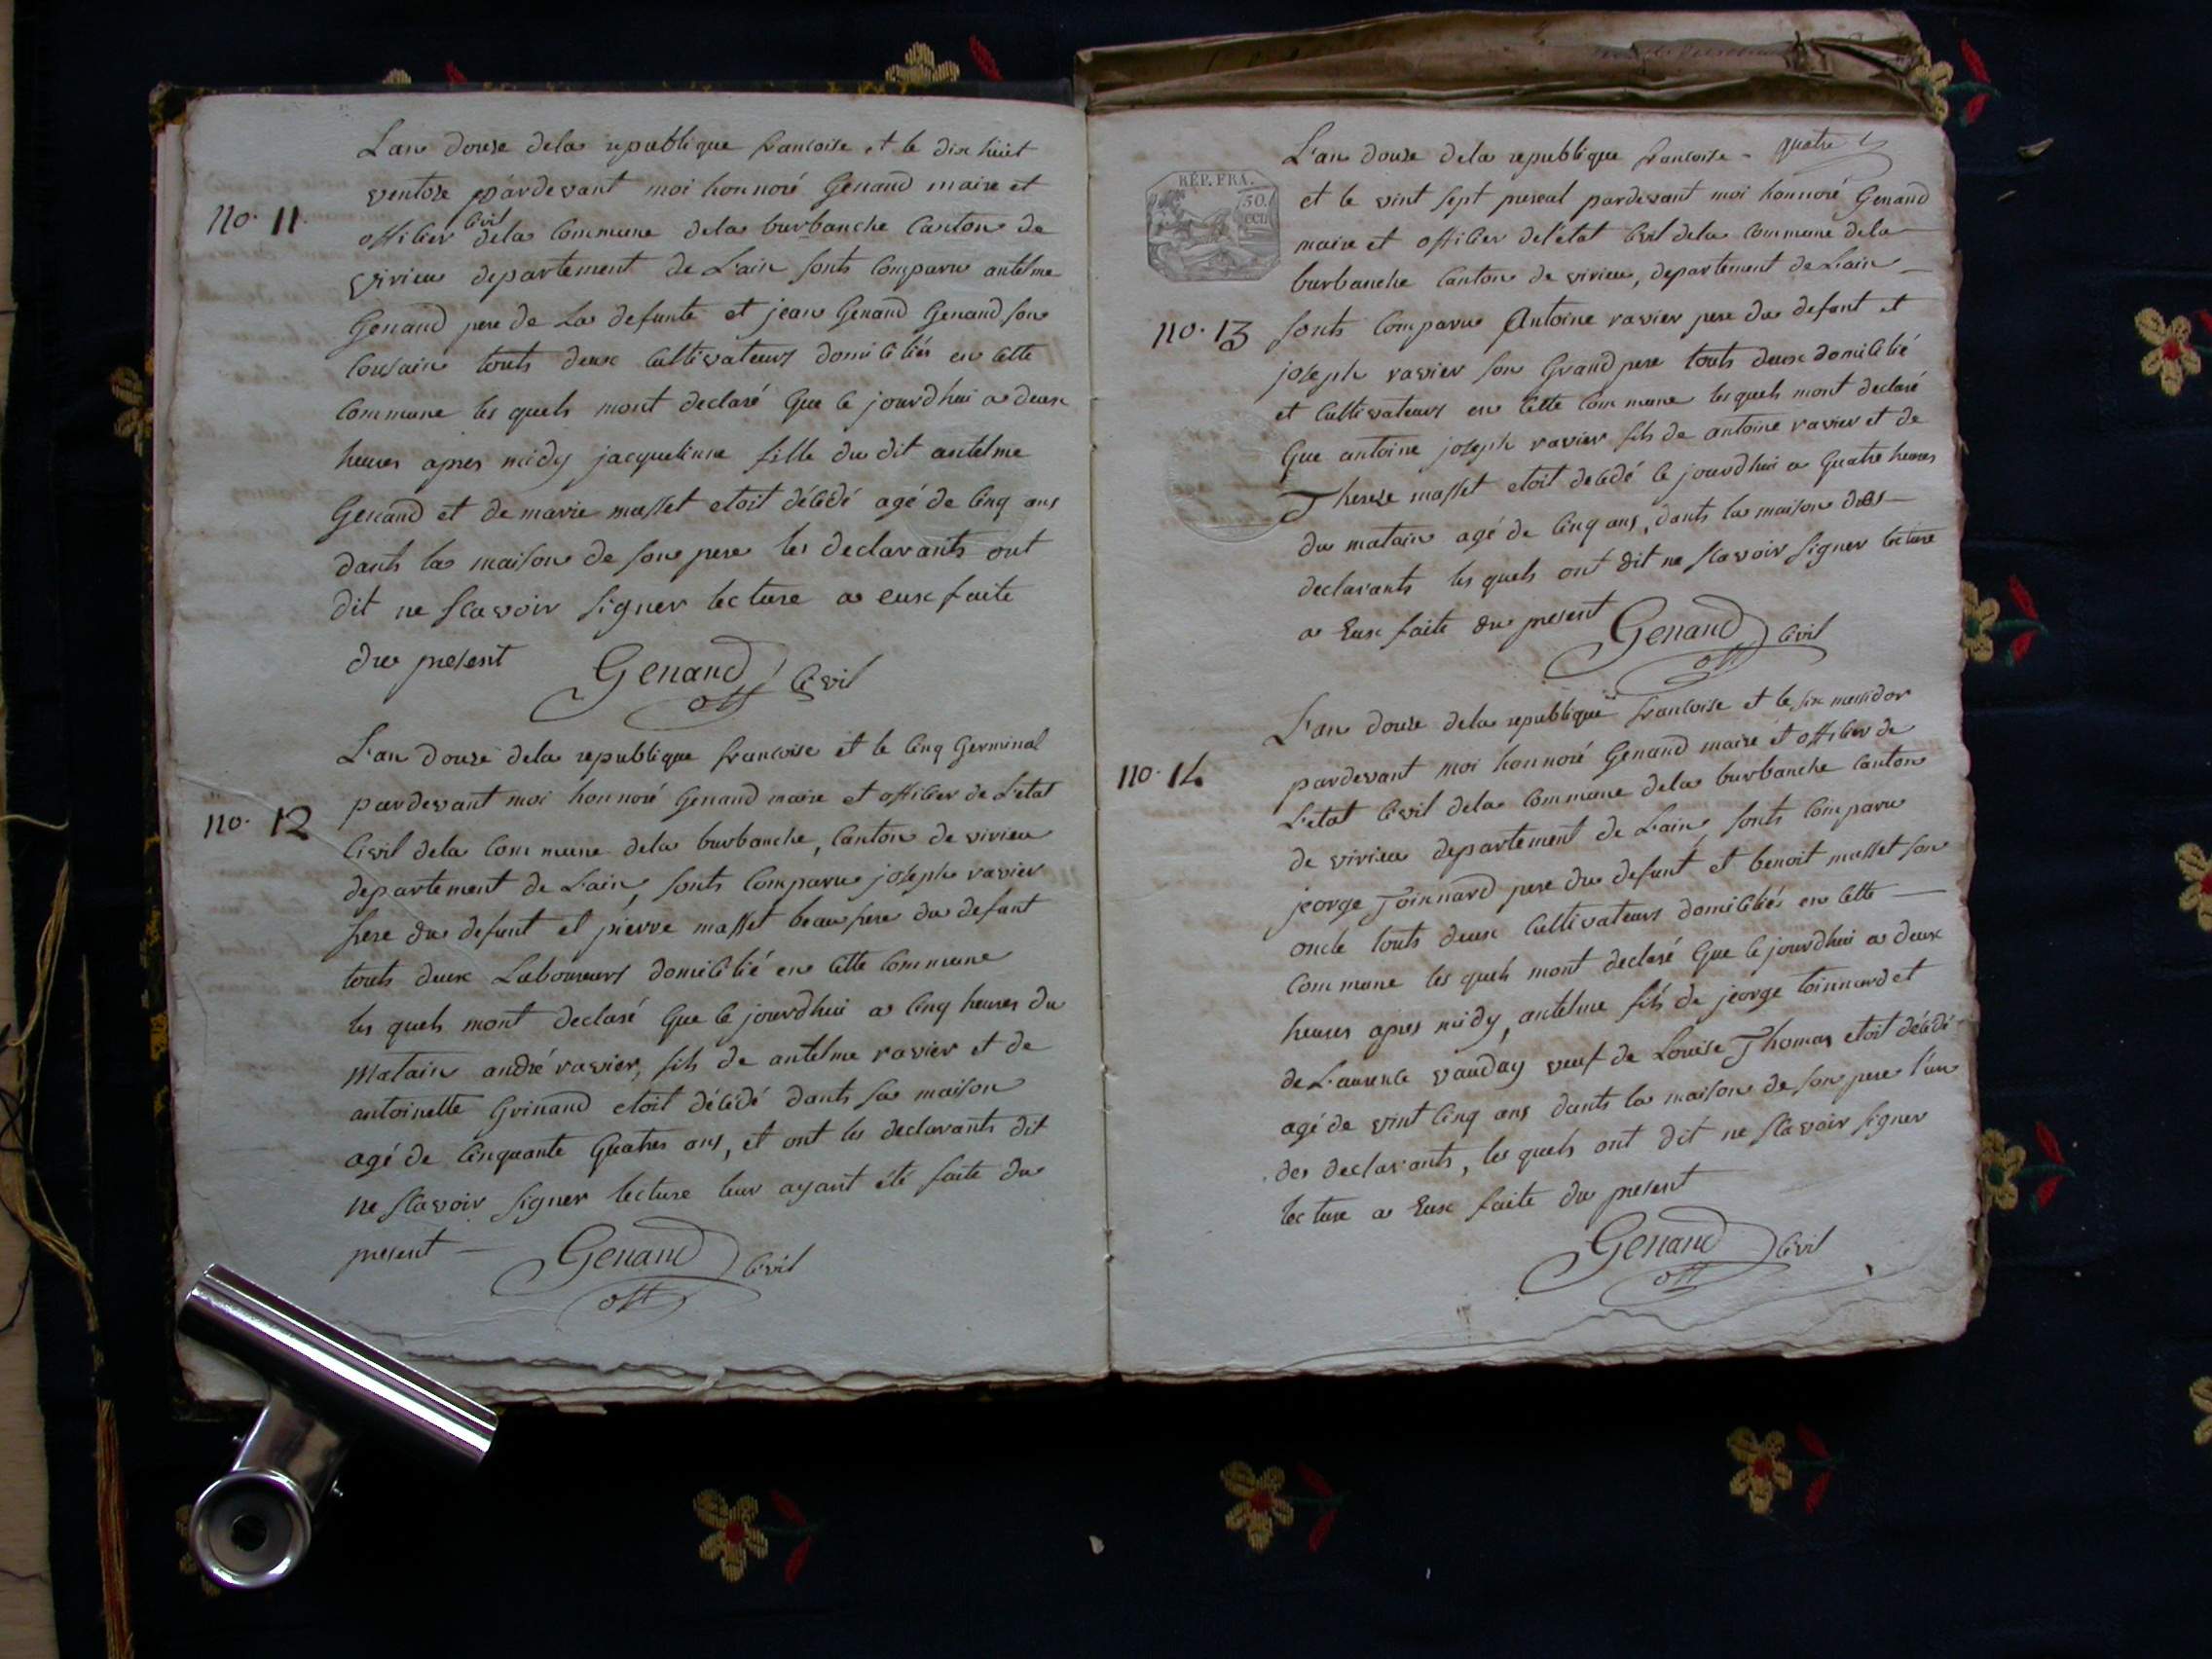 L'an douze dela republique francoise et le dix huit
ventose pardevant moi honnoré Genand maire et
no. 11.
officier civil dela commune dela burbanche canton de
virieu departement de L'ain sonts comparu antelme
Genand pere de La defunte et jean Genand Genand son
cousain touts deux cultivateurs domiciliés en cette
commune les quels mont declaré que ce jourdhui a deux
heures apres midy jacquelinne fille du dit antelme
Genand et de marie masset etoit décédé agé de cinq ans
dants la maison de son pere les declarants ont
dit ne scavoir signer lecture a eux faite
du present Genand off civil
L'an douze dela republique francoise et le cinq Germinal
pardevant moi honnoré Genand maire et officier de L'etat
no. 12
civil dela commune dela burbanche, canton de virieu
departement de L'ain, sonts comparu joseph ravier
frere du defunt et pierre masset beaufrere du defunt
touts deux Laboureurs domicilié en cette commune
les quels mont declaré que ce jourdhui a cinq heures du
matain andré ravier, fils de antelme ravier et de
antoinette Grinand etoit décédé dants sa maison
agé de cinquante quatres ans, et ont les declarants dit
ne scavoir signer lecture leur ayant été faite du
present Genand off civil
L'an douze dela republique francoise - quatre
RÉP. FRA.
50.
et le vint sept prereal pardevant moi honnoré Genand
maire et officier del'etat civil dela commune dela
burbanche canton de virieu, departement de L'ain
no. 13
sonts comparu Antoine ravier pere du defunt et
joseph ravier son Grandpere touts deux domicilié
et cultivateurs en cette commune lesquels mont declaré
que antoine joseph ravier fils de antoine ravier et de
Therese masset etoit decédé ce jourdhui a quatre heures
du matain agé de cinq ans, dants la maison des
declarants les quels ont dit ne scavoir signer lecture
a Eux faite du present Genand off civil
L'an douze dela republique francoise et le six messidor
pardevant moi honnoré Genand maire et officier de
no. 14
L'etat civil dela commune dela burbanche canton
de virieu departement de L'ain, sonts comparu
jeorge Toinnard pere du defunt et benoit masset son
oncle touts deux cultivateurs domiciliés en cette
commune les quels mont declaré que ce jourdhui a deux
heures apres midy, antelme fils de jeorge toinnard et
de L'aurence vauday veuf de Louise Thomas etoit décédé
agé de vint cinq ans dants la maison de son pere l'un
des declarants, les quels ont dit ne scavoir signer
lecture a Eux faite du present
Genand off civil